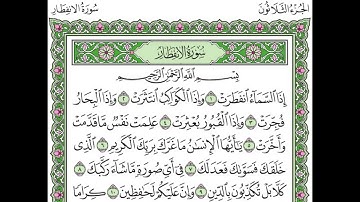 الجزء الثلاثون
سورة الانفطار
سورة الانفطار
بسم الله الرحمن الرحيم
إِذَا ٱلسَّمَآءُ ٱنفَطَرَتۡ ١ وَإِذَا ٱلۡكَوَاكِبُ ٱنتَثَرَتۡ ٢ وَإِذَا ٱلۡبِحَارُ
فُجِّرَتۡ ٣ وَإِذَا ٱلۡقُبُورُ بُعۡثِرَتۡ ٤ عَلِمَتۡ نَفۡسٞ مَّا قَدَّمَتۡ
وَأَخَّرَتۡ ٥ يَٰٓأَيُّهَا ٱلۡإِنسَٰنُ مَا غَرَّكَ بِرَبِّكَ ٱلۡكَرِيمِ ٦ ٱلَّذِي
خَلَقَكَ فَسَوَّىٰكَ فَعَدَلَكَ ٧ فِيٓ أَيِّ صُورَةٖ مَّا شَآءَ رَكَّبَكَ ٨
كَلَّا بَلۡ تُكَذِّبُونَ بِٱلدِّينِ ٩ وَإِنَّ عَلَيۡكُمۡ لَحَٰفِظِينَ ١٠ كِرَامٗا